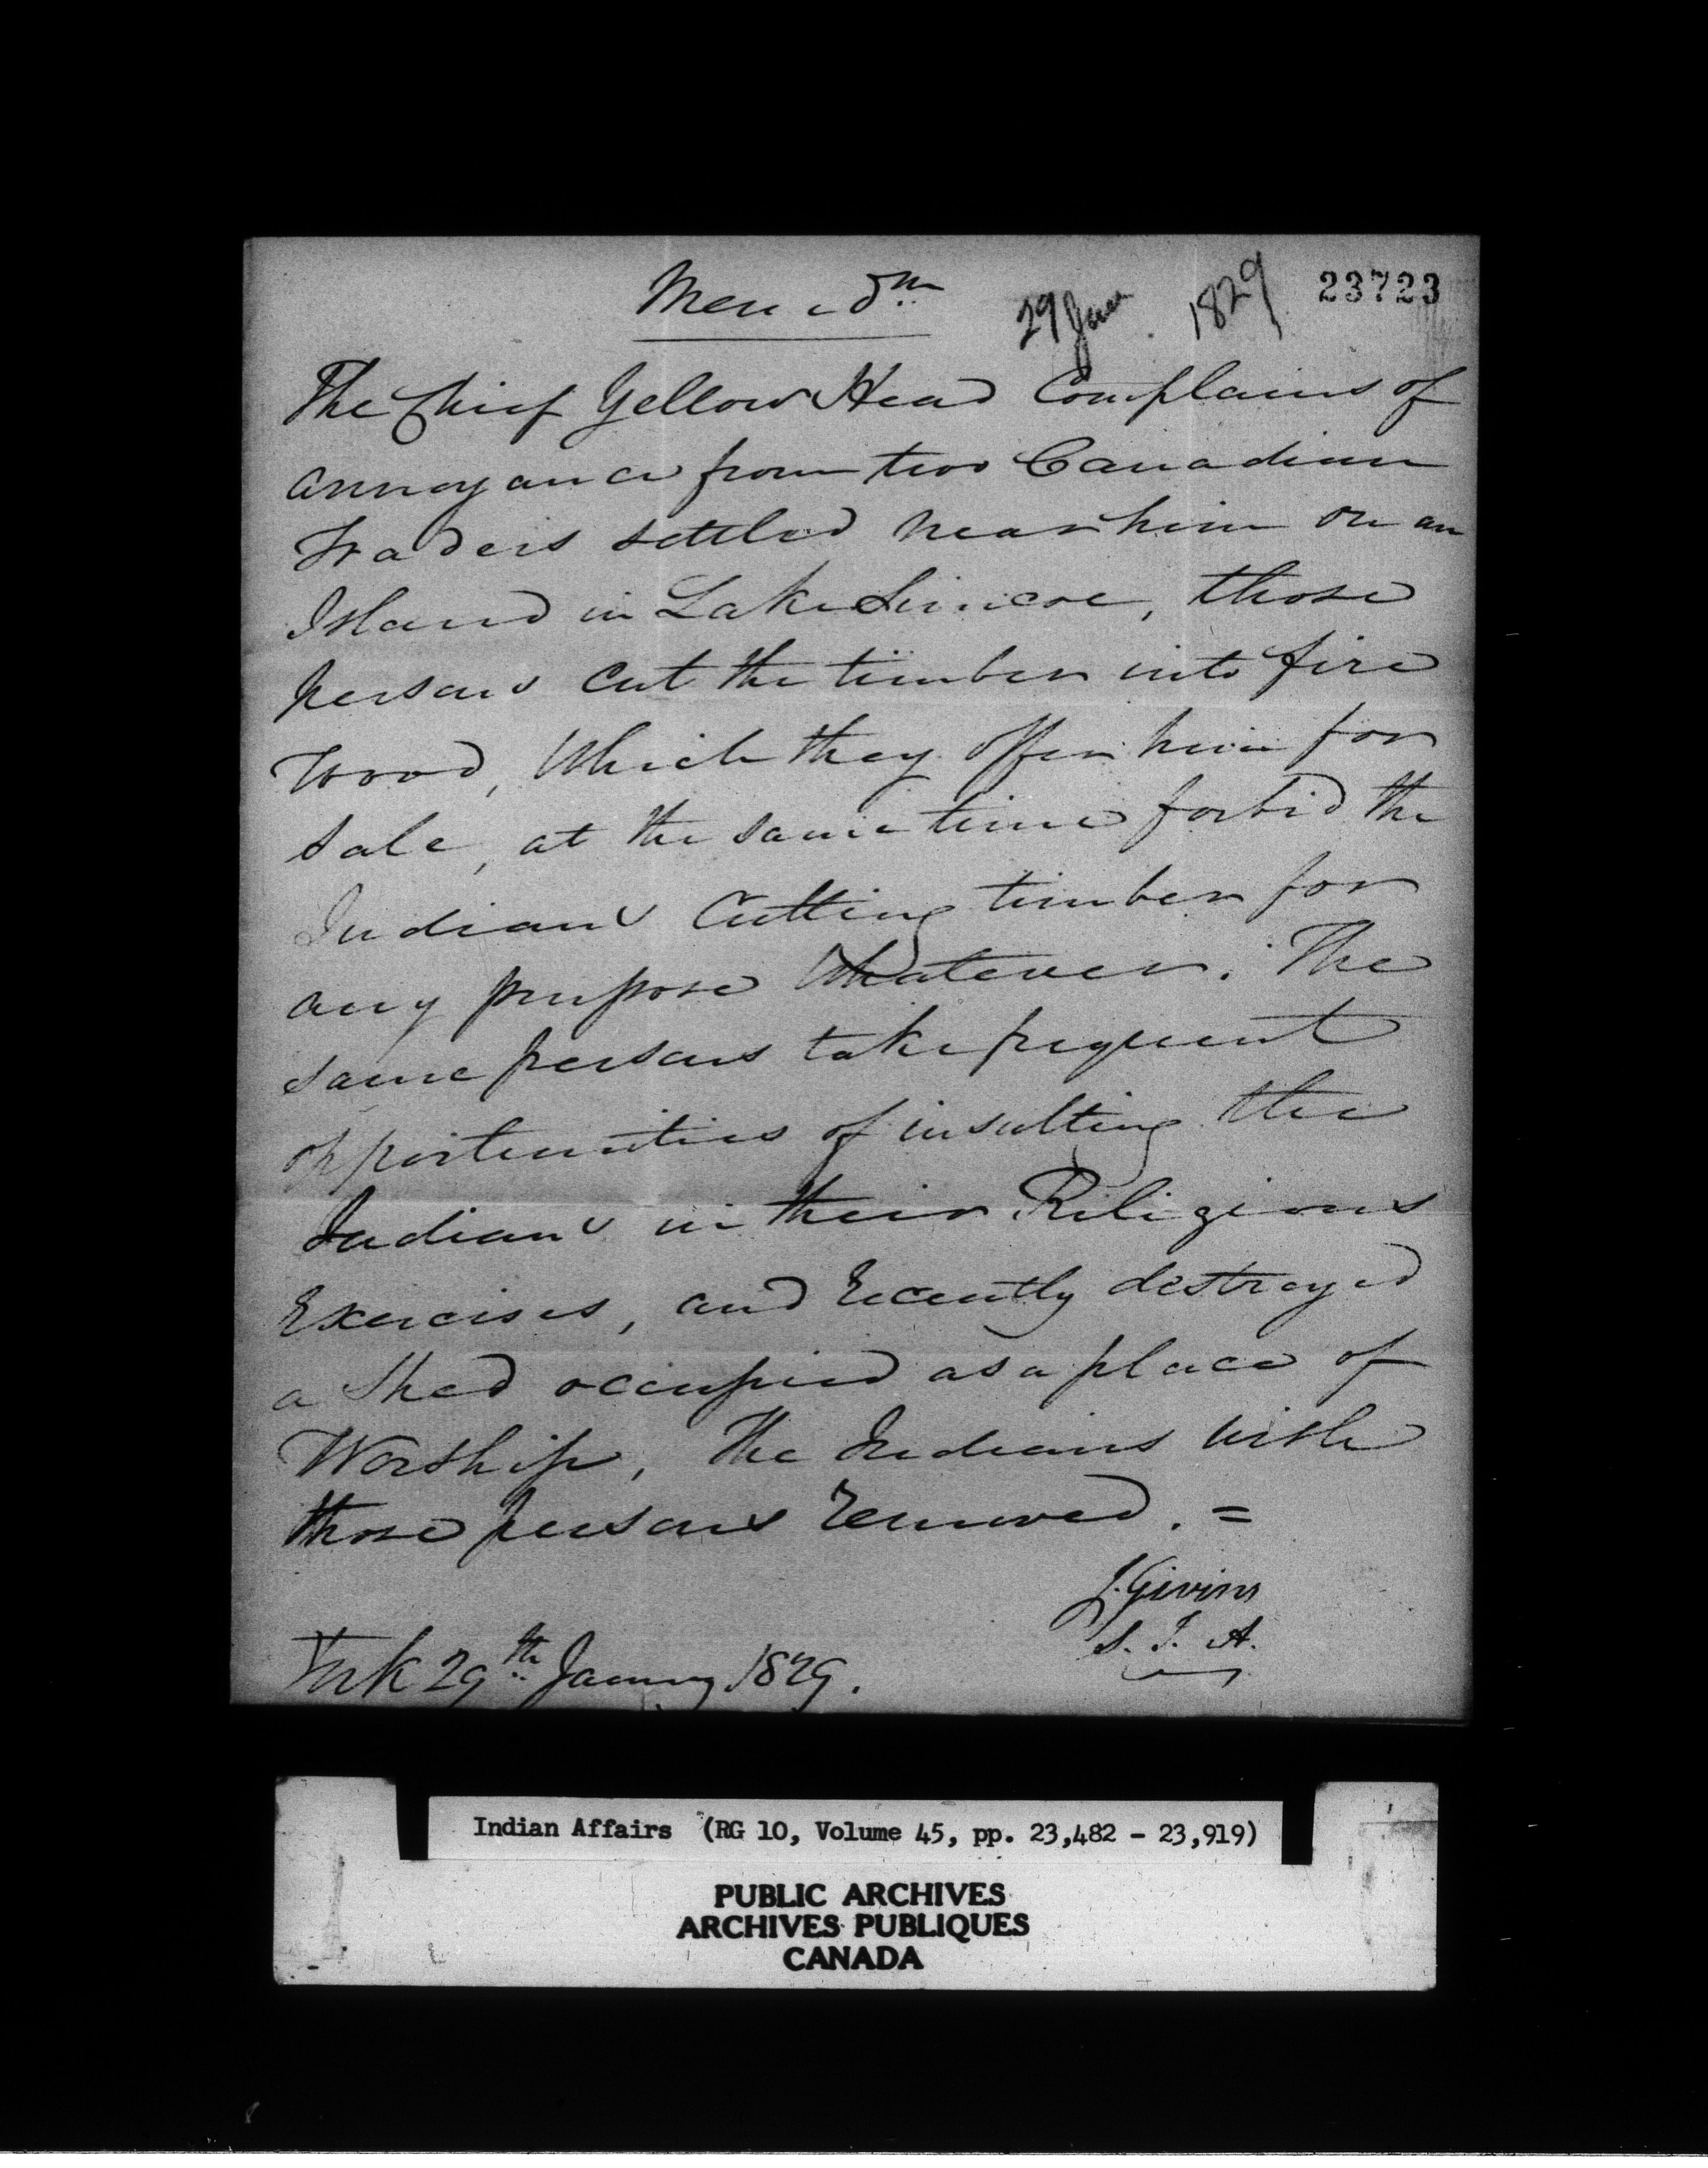 Memodm
29 Jan 1829
23723
The Chief Yellow Head Complains of
annoyance from two Canadian
Traders settled near him on an
Island in Lake Simcoe, those
persons cut the timber into fire
Wood, Which they offer him for
sale, at the same time forbid the
Indians Cutting timber for
any purpose Whatever. The
same persons take frequent
opportunities of insulting the
Indians in their Religious
Exercises, and recently destroyed
a shed occupied as a place of
Worship, The Indians wish
those persons removed. =
J. Givins
S. I. A.
York 29th January 1829.
Indian Affairs (RG 10, Volume 45, pp. 23,482 - 23,919)
PUBLIC ARCHIVES
ARCHIVES PUBLIQUES
CANADA